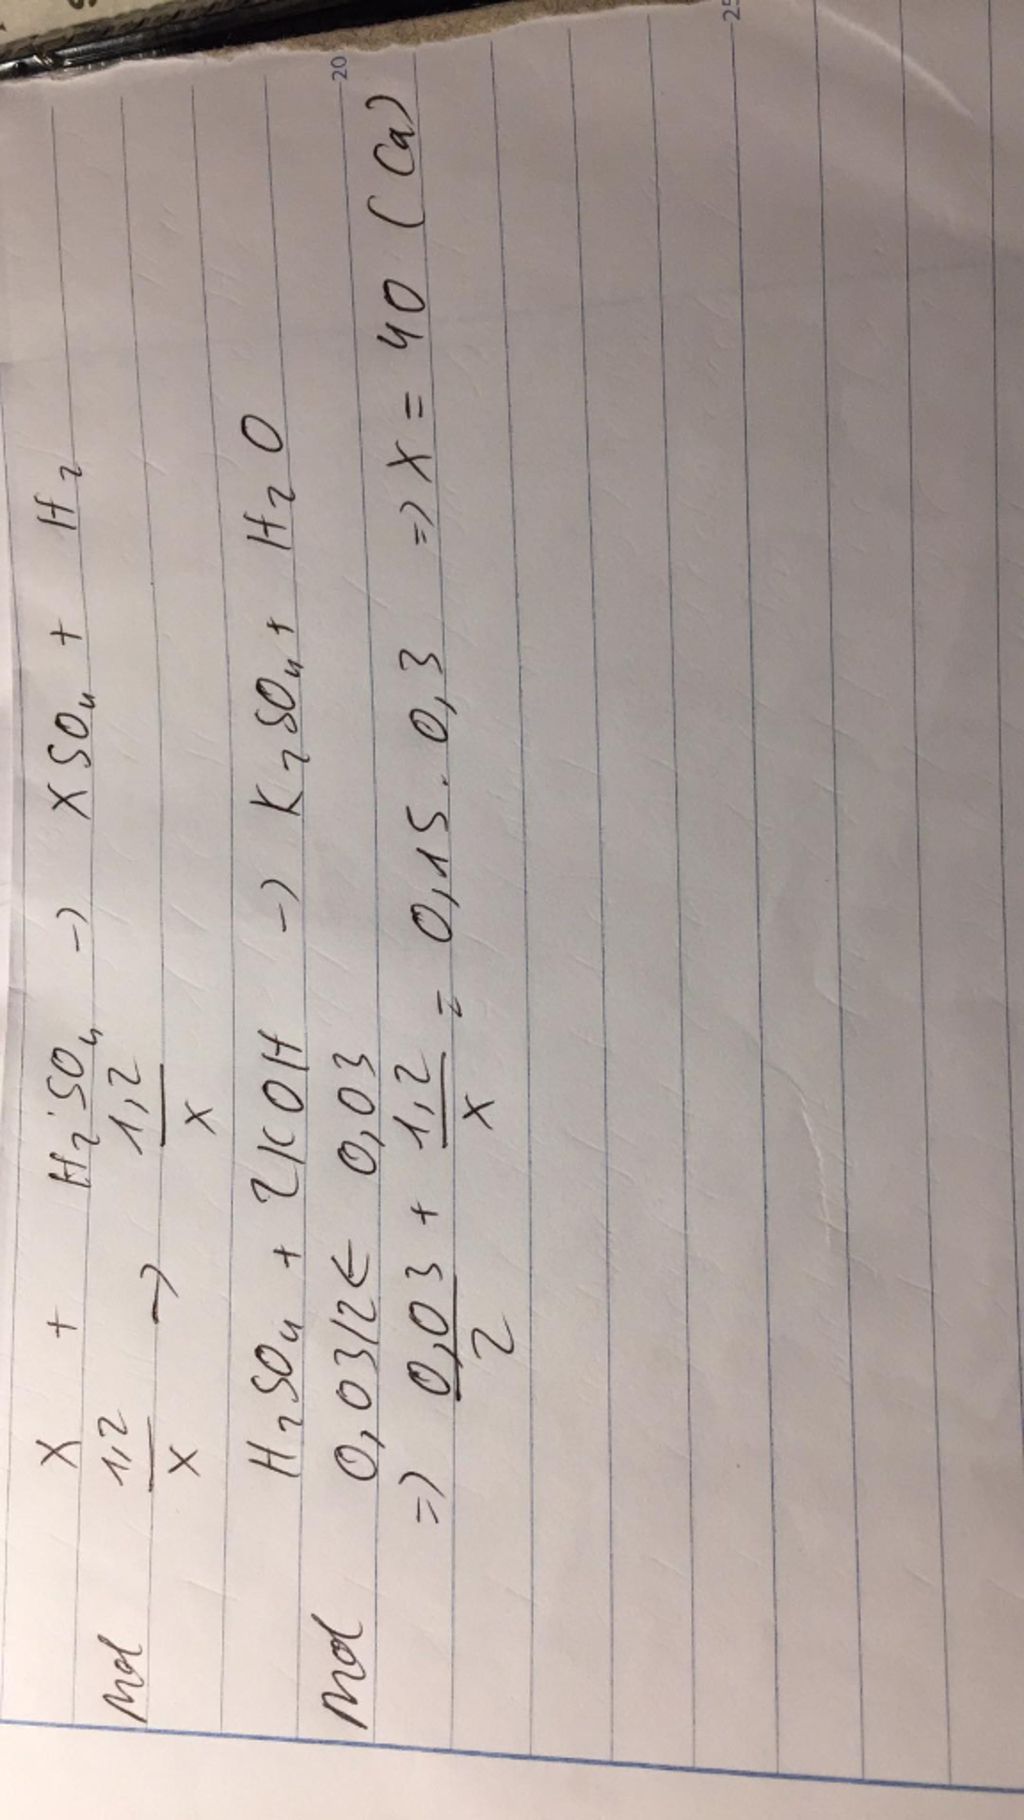 X + H₂SO₄ -> XSO₄ + H₂
Mol 1,2/X -> 1,2/X
H₂SO₄ + 2KOH -> K₂SO₄ + H₂O
Mol 0,03/2 <- 0,03
=> 0,03/2 + 1,2/X = 0,15 . 0,3 => X = 40 (Ca)
20
25